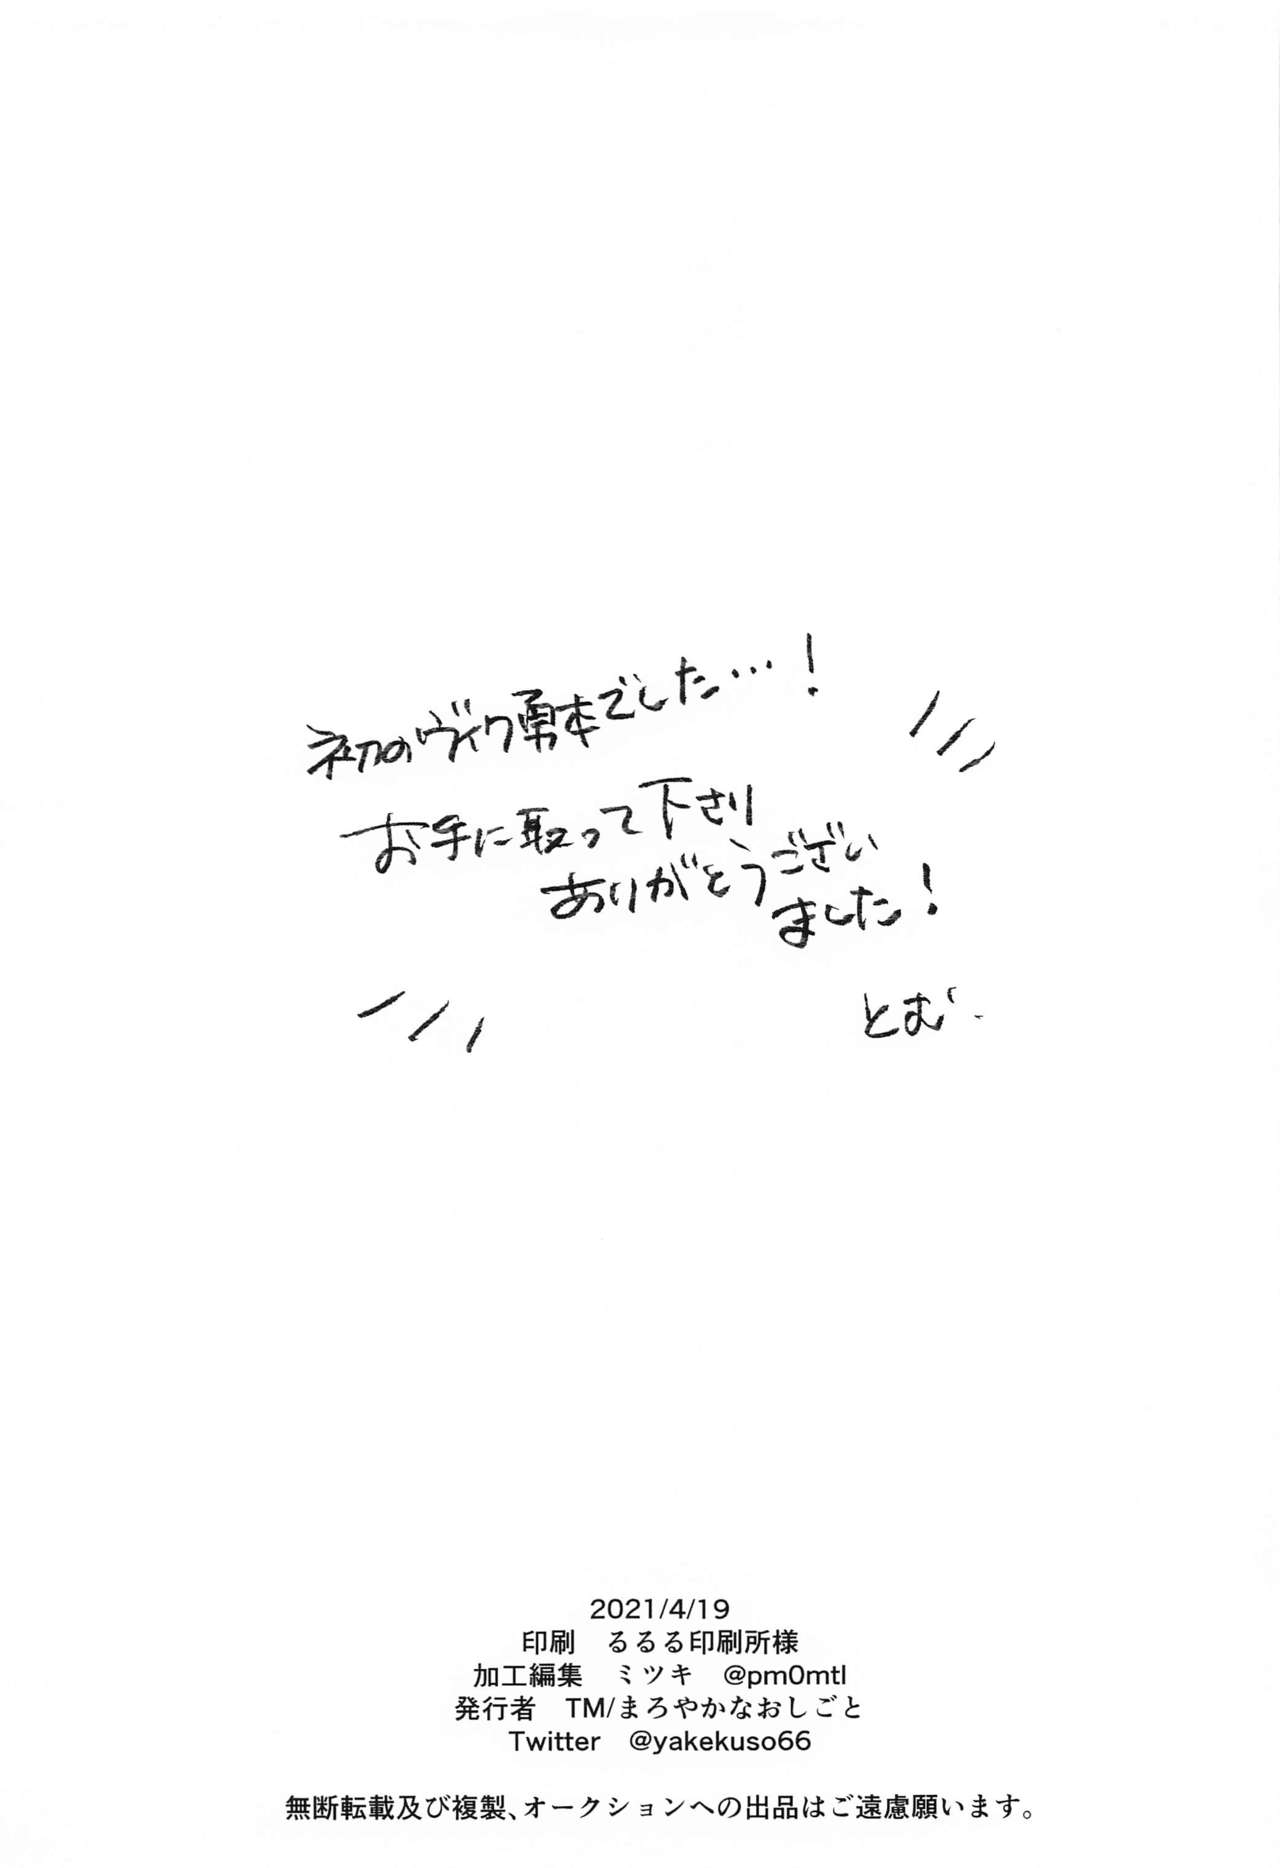 初のヴィク勇本でした…!
お手に取って下さり
ありがとうござい
ました!
とむ
2021/4/19
印刷　るるる印刷所様
加工編集　ミツキ　@pm0mtl
発行者　TM/まろやかなおしごと
Twitter　@yakekuso66
無断転載及び複製、オークションへの出品はご遠慮願います。